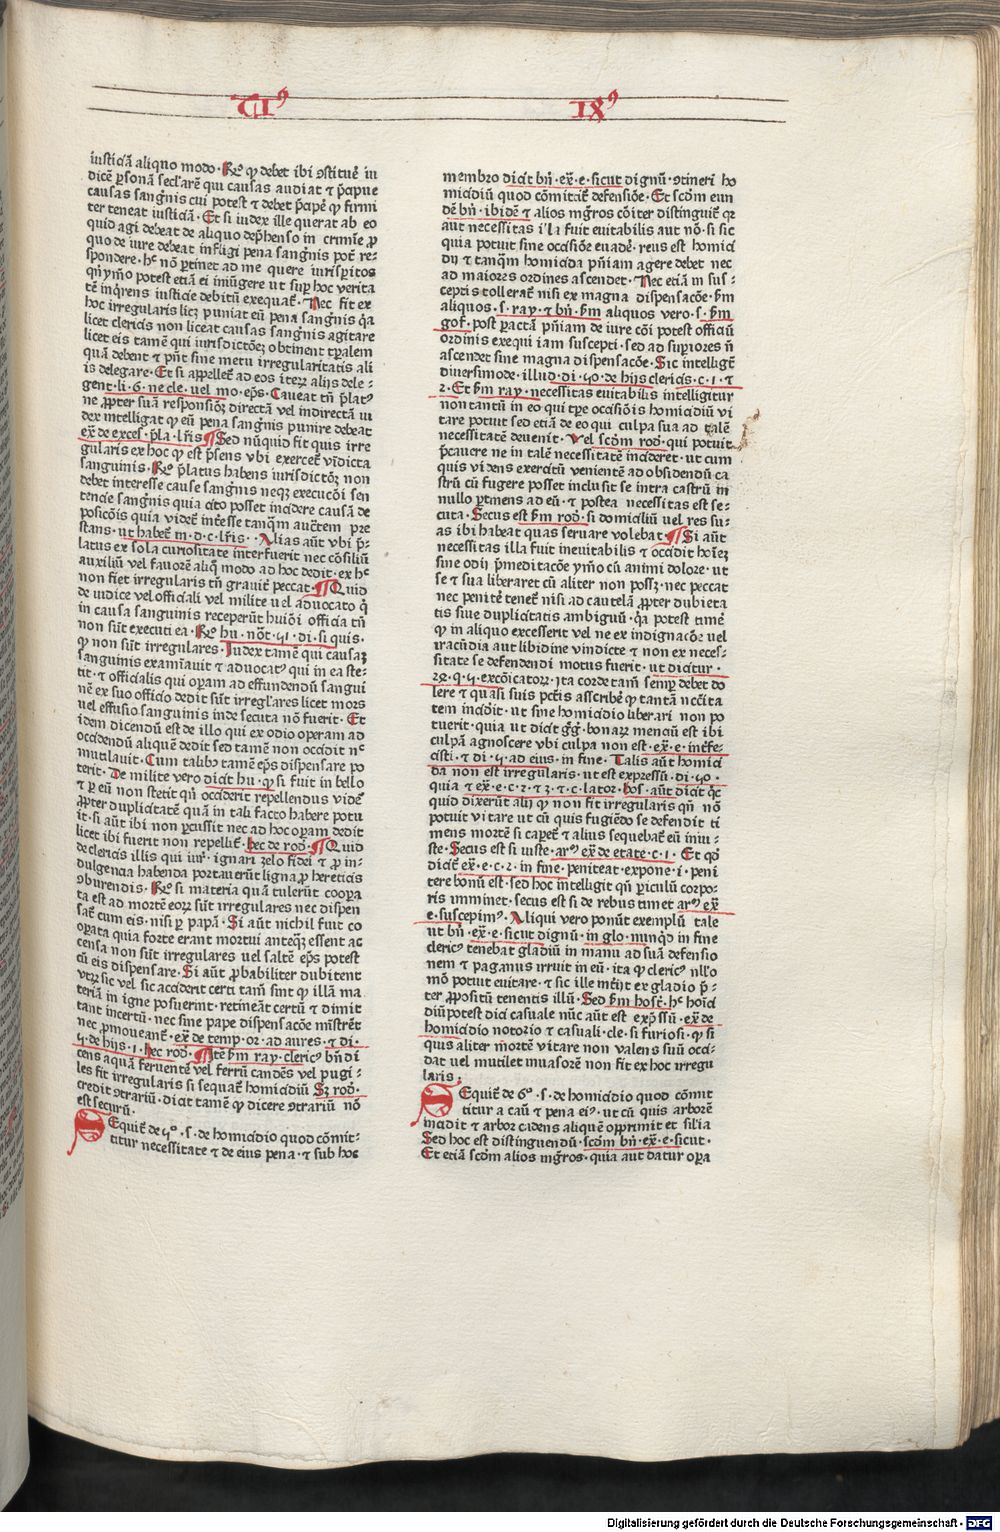 TI⁹ IX⁹
iusticiã aliquo modo · R̃o ꝙ debet ibi ɔstituẽ iu
dicẽ ꝑsonã seclarẽ qui causas audiat ⁊ p̃apue
causas sanguĩs cui potest ⁊ debet p̃cipẽ ꝙ firmi
ter teneat iusticiã · Et si iudex ille querat ab eo
quid agi debeat de aliquo dep̃henso in crimĩe ꝓ
quo de iure debeat infligi pena sangñis pot̃ re⸗
spondere · hͨ nõ ꝑtinet ad me quere iurisꝑitos
qñ ymo potest etiã ei iniũgere ut suꝑ hoc verita
tẽ inq̃rens iusticie debitũ exequat̃ · Nec fit ex
hoc irregularis licꝫ puniat eũ pena sangñis q̃a
licet clericis non liceat causas sangñis agitare
licet eis tamẽ qui iurisdictõeꝫ obtinent tꝑalem
quã debent ⁊ pñt sine metu irregularitatis ali
is delegare · Et si appellet̃ ad eos iteꝝ alijs dele⸗
gent · li · 6 · ne cle · vel mo · ep̃s · Caveat tñ p̃latꝰ
ne ꝓpter suã responsiõeꝫ directã vel indirectã iu
dex intelligat ꝙ eũ pena sangñis punire debeat
ex̃ de exces · p̃la · lr̃is ¶ Sed nũquid fit quis irre
gularis ex hoc ꝙ est p̃sens vbi exercet̃ vĩdicta
sanguinis · R̃o p̃latus habens iurisdictõeꝫ non
debet interesse cause sangñis neqꝫ execucõi sen
tencie sangñis quia cito posset incidere causã de
posicõis quia videt̃ inte̾sse tanq̃m auc̃tem pre
stans · ut habet̃ in · d · c · lr̃is · Alias aũt vbi p̃⸗
latus ex sola curiositate interfuerit nec cõsiliũ
auxiliũ vel favorẽ aliq̃ modo ad hoc dedit · ex hͨ
non fiet irregularis tñ gravit̃ peccat · ¶ Quid
de iudice vel officiali vel milite uel advocato q̃
in causa sanguinis receperũt huiõi officia tñ
non sũt executi ea · R̃o hu · nõt · 51 · di · si quis ·
ꝙ non sũt irregulares · Judex tamẽ qui causaꝫ
sanguinis examĩavit ⁊ advocatꝰ qui in ea ste⸗
tit · ⁊ officialis qui oꝑam ad effundendũ sangui
nẽ ex suo officio dedit sũt irregl̃ares licet mors
vel effusio sanguinis inde secuta nõ fuerit · Et
idem dicendũ est de illo qui ex odio operam ad
occidendũ aliquẽ dedit sed tamẽ non occidit nͨ
mutilavit · Cum talibꝰ tamẽ ep̃s dispensare po
terit · De milite vero dicit hu · ꝙ si fuit in bello
⁊ ꝑ eũ non stetit qñ occiderit repellendus videt̃
ꝓpter duplicitatẽ quã in tali facto habere potu
it · si aũt ibi non ꝑcussit nec ad hoc oꝑam dedit
licet ibi fuerit non repellit̃ · hec de rod · ¶ Quid
de clericis illis qui iur̃ · ignari zelo fidei ⁊ ꝓ in⸗
dulgencia habenda portaverũt ligna ꝓ hereticis
ɔburendis · R̃o si materia quã tulerũt cooꝑa
ta est ad mortẽ eoꝝ sũt irregulares nec dispen
sat̃ cum eis · nisi ꝑ papã · Si aũt nichil fuit co
oꝑata quia forte erant mortui anteqꝫ essent ac
censa non sũt irregulares uel saltẽ ep̃s potest
cũ eis dispensare · Si aũt ꝓbabiliter dubitent
vtꝝ sic vel sic acciderit certi tam̃ sint ꝙ illã ma
teriã in igne posuerint · retineãt certũ ⁊ dimit
tant incertũ · nec sine pape dispensacõe mĩstrẽt
nec ꝓmoveant̃ · ex̃ de temp · or · ad aures · ⁊ di ·
5 · de hijs · 1 · hec rod · ¶ Itẽ ẜm ray · clericꝰ bñdi
cens aquã ferventẽ vel ferrũ candẽs vel pugi⸗
les fit irregularis si sequat̃ homicidiũ Sꝫ rod ·
credit ɔtrariũ · dicit tamẽ ꝙ dicere ɔtrariũ nõ
est securũ ·
Sequit̃ de 5º · s · de homicidio quod cõmit⸗
titur necessitate ⁊ de eius pena · ⁊ sub hoc
membro dicit bñ · ex̃ · e · sicut dignũ · ɔtineri ho
micidiũ quod cõmitit̃ defensiõe · Et scdm eun
dẽ bñ · ibidẽ ⁊ alios mg̃ros cõiter distinguit̃ qꝛ
aut necessitas illa fuit evitabilis aut nõ · si sic
quia potuit sine occisiõe evadẽ · reus est homici
dij ⁊ tanq̃m homicida pñiam agere debet nec
ad maiores ordines ascendet · Nec etiã in sus⸗
ceptis tollerat̃ nisi ex magna dispensacõe · ẜm
aliquos · s · ray · ⁊ bñ · ẜm aliquos vero · s · ẜm
gof̃ · post ꝑactã pñiam de iure cõi potest officiũ
ordinis exequi iam suscepti · sed ad suꝑiores ñ
ascendet sine magna dispensacõe · Sic intelligit̃
diversimode · illud · di · 50 · de hijs clericis · c · 1 · ⁊
2 · Et ẜm ray · necessitas evitabilis intelligitur
non tantũ in eo qui tꝑe occisiõis homicidiũ vi
tare potuit sed etiã de eo qui culpa sua ad talẽ
necessitatẽ devenit · Vel scdm rod · qui potuit
p̃cavere ne in talẽ necessitatẽ incideret · ut cum
quis videns exercitũ venientẽ ad obsidendũ ca
strũ cũ fugere posset inclusit se intra castrũ in
nullo ꝑtinens ad eũ · ⁊ postea necessitas est se⸗
cuta · Secus est ẜm rod · si domiciliũ uel res su⸗
as ibi habeat quas servare volebat · ¶ Si aũt
necessitas illa fuit inevitabilis ⁊ occidit hoĩeꝫ
sine odij p̃meditacõe ymo cũ animi dolore · ut
se ⁊ sua liberaret cũ aliter non possꝫ · nec peccat
nec penitẽ tenet̃ nisi ad cautelã ꝓpter dubieta
tis sive duplicitatis ambiguũ · q̃a potest timẽ
ꝙ in aliquo excesserit vel ne ex indignacõe uel
iracũdia aut libidine vindicte ⁊ non ex neces⸗
sitate se defendendi motus fuerit · ut dicitur ·
22 · q · 5 · excõicatoꝝ · ita corde tam̃ semꝑ debet do
lere ⁊ quasi suis pctĩs asscribẽ ꝙ tantã nccĩta
tem incidit · ut sine homicidio liberari non po
tuerit · quia ut dicit gg̃ · bonaꝝ menciũ est ibi
culpã agnoscere vbi culpa non est · ex̃ · e · inte̾fe⸗
cisti · ⁊ di · 5 · ad eius · in fine · Talis aũt homici
da non est irregularis · ut est expressũ · di · 50 ·
quia ⁊ ex̃ · e · c · 2 · ⁊ 3 · ⁊ · c · lator · hos̃ · aũt dicit qͨ
quid dixerũt alij ꝙ non fit irregularis qñ nõ
potuit vitare ut cũ quis fugiẽdo se defendit ti
mens mortẽ si caꝑet̃ ⁊ alius sequebat̃ eũ iniu⸗
ste · Secus est si iuste · arº ex̃ de etate · c · 1 · Et qd̾
dicit̃ ex̃ · e · c · 2 · in fine · peniteat · expone · i · peni
tere bonũ est · sed hoc intelligit̃ qñ ꝑiculũ corpo⸗
ris imminet · secus est si de rebus timet arº ex̃
e · suscepimꝰ · Aliqui vero ponũt exemplũ tale
ut bñ · ex̃ · e · sicut dignũ · in glo · nũqͥd in fine
clericꝰ tenebat gladiũ in manu ad suã defensio
nem ⁊ paganus irruit in eũ · ita ꝙ clericꝰ nl̃lo
mõ potuit evitare · ⁊ sic ille mĩt ex gladio p̃⸗
ter ꝓpositũ tenentis illũ · Sed ẜm host̃ · hͨ hoĩci
diũ potest dici casuale nũc aũt est exp̃ssũ · ex̃ de
homicidio notorio ⁊ casuali · cle · si furiosi · ꝙ si
quis aliter mortẽ vitare non valens suũ occi⸗
dat vel mutilet invasorẽ non fit ex hoc irregu
laris ·
Sequit̃ de 6º · s · de homicidio quod cõmit
titur a caũ ⁊ pena eiꝰ · ut cũ quis arborẽ
incidit ⁊ arbor cadens aliquẽ opprimit et silia
Sed hoc est distinguendũ · scdm bñ · ex̃ · e · sicut ·
Et etiã scdm alios mg̃ros · quia aut datur oꝑa
Digitalisierung gefördert durch die Deutsche Forschungsgemeinschaft - DFG